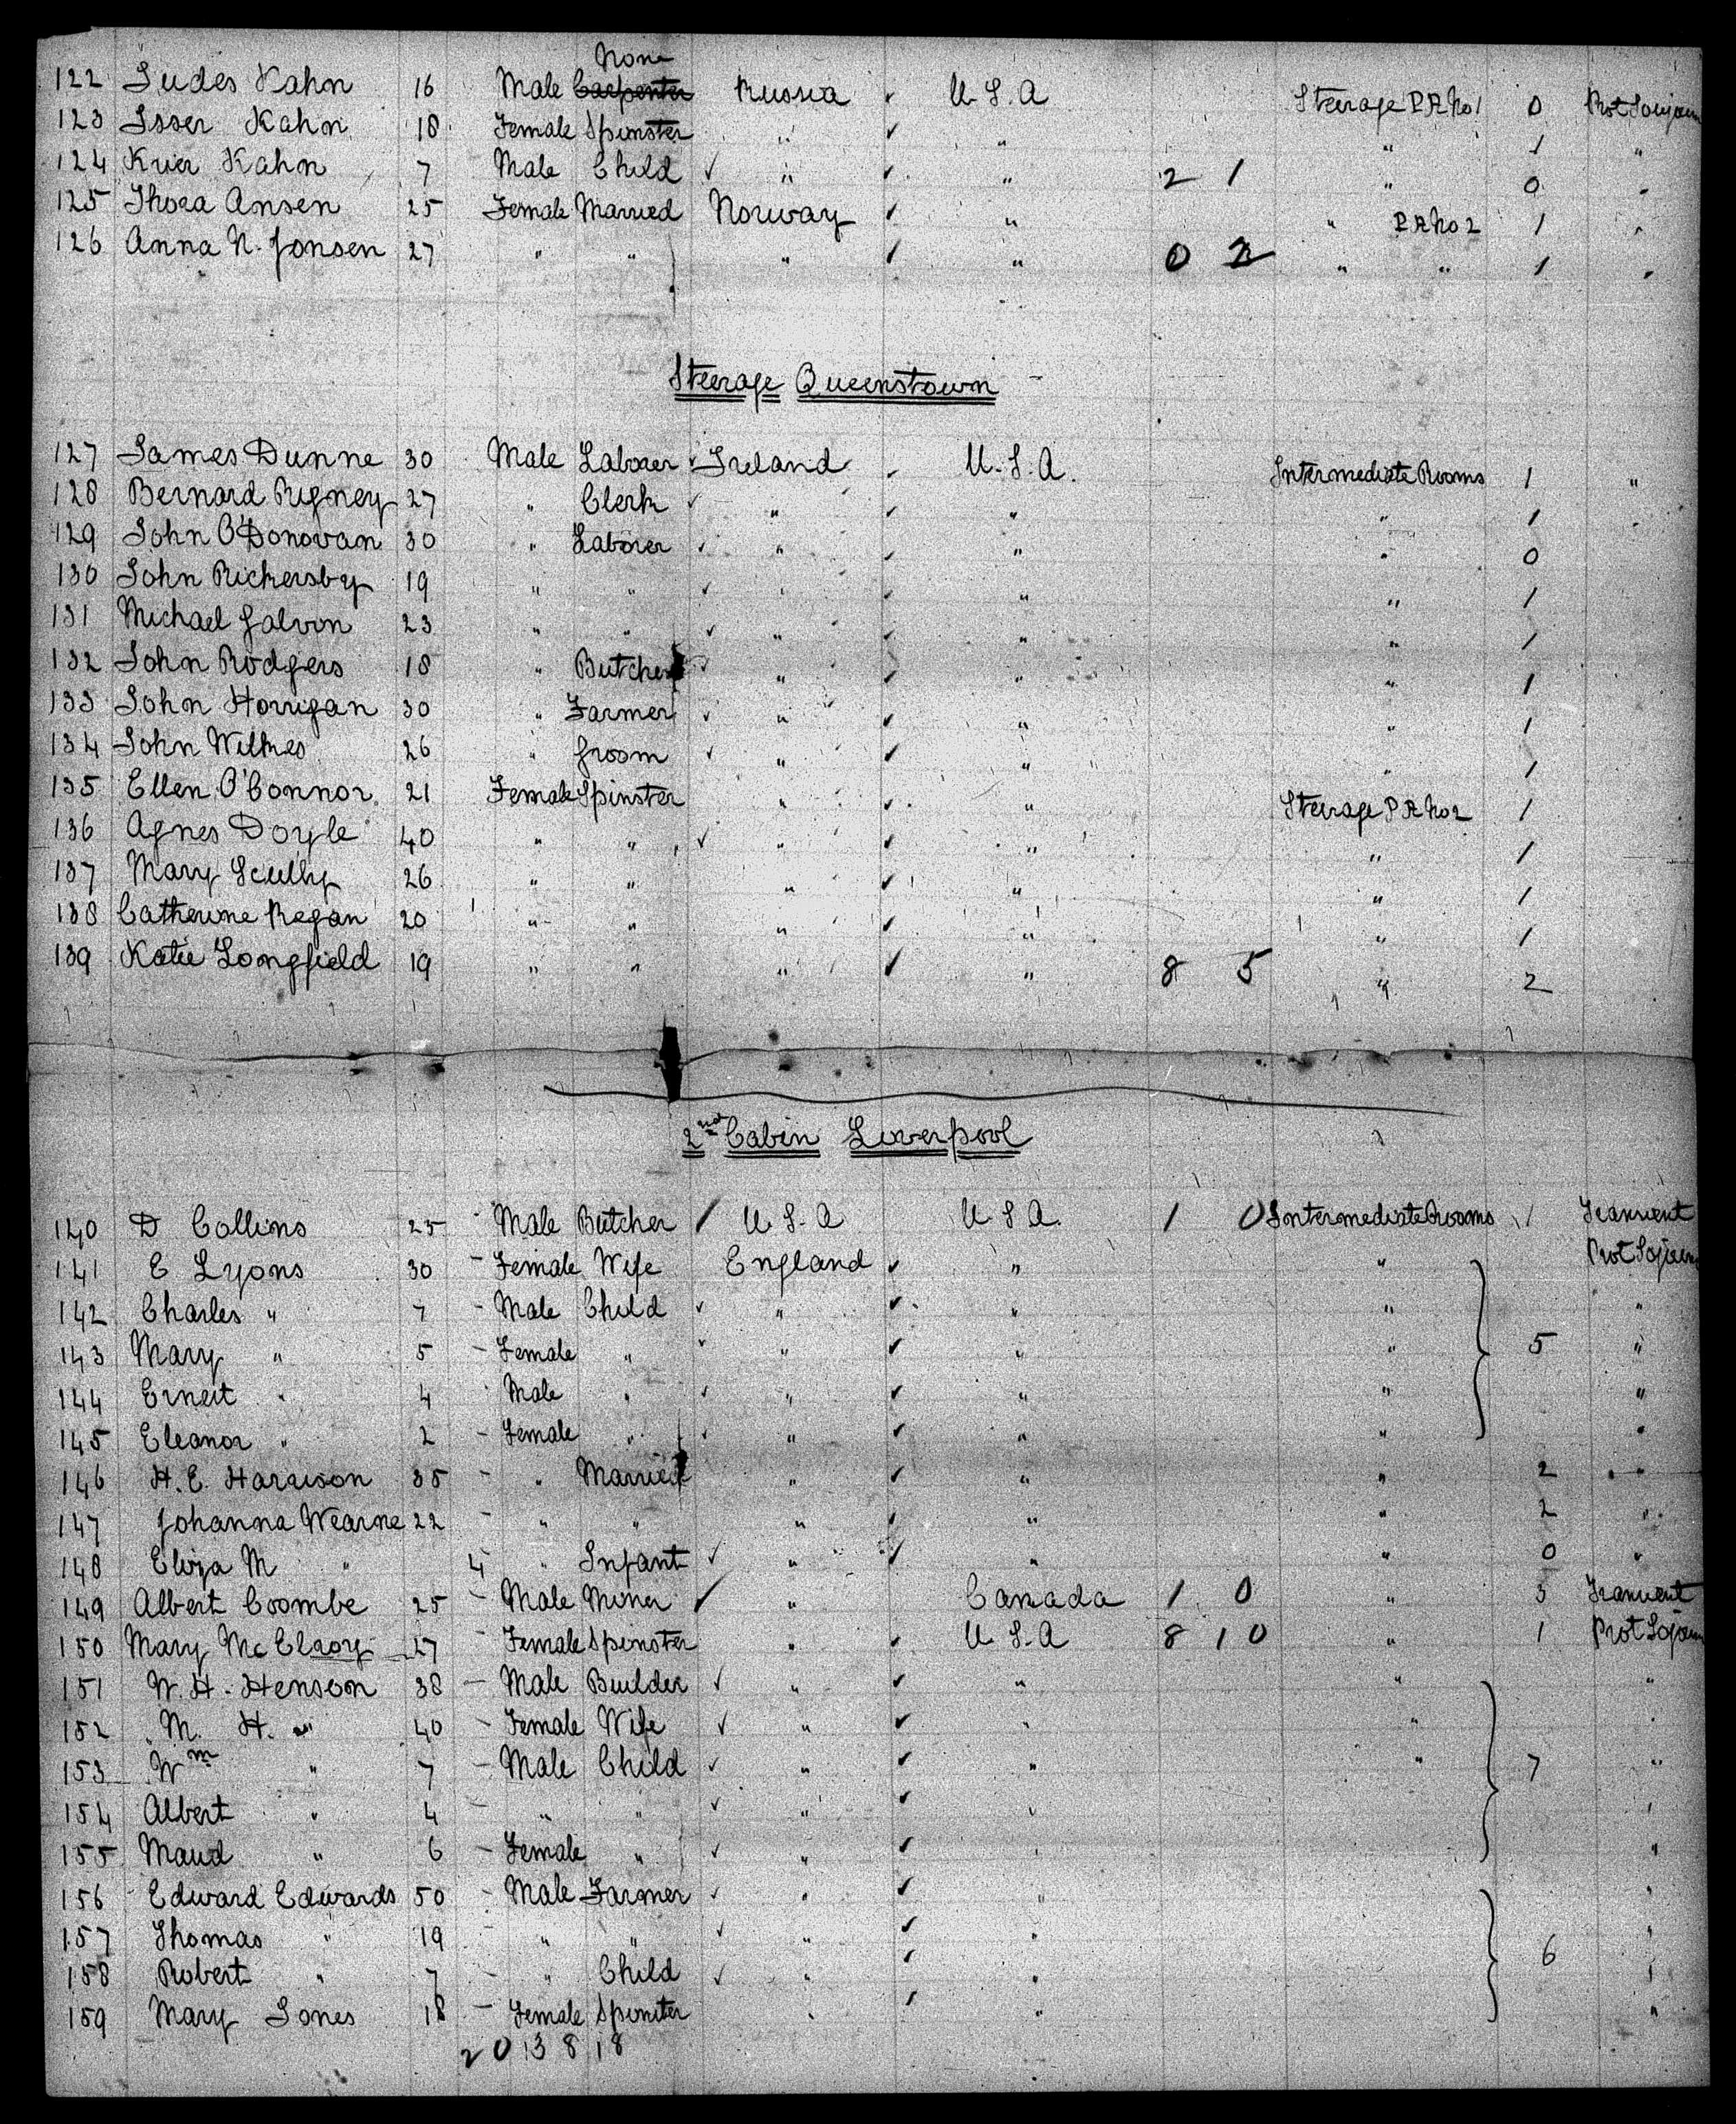 None
122 Judes Kahn 16 Male Carpenter Russia U.S.A Steerage P.A. No 1 0 Prot Sojourn
123 Isser Kahn 18 Female Spinster " " " 1 "
124 Krier Kahn 7 Male Child " " 2 1 " 0 "
125 Thora Ansen 25 Female Married Norway " " P.A. No 2 1 "
126 Anna N. Jonsen 27 " " " " 0 2 " " 1 "
Steerage Queenstown
127 James Dunne 30 Male Laborer Ireland U.S.A. Intermediate Rooms 1 "
128 Bernard Rigney 27 " Clerk " " " 1 "
129 John O'Donovan 30 " Laborer " " " 0
130 John Rickersby 19 " " " " " 1
131 Michael Galvin 23 " " " " " 1
132 John Rodgers 18 " Butcher " " " 1
133 John Horrigan 30 " Farmer " " " 1
134 John Wilkes 26 " Groom " " " 1
135 Ellen O'Connor 21 Female Spinster " " Steerage P.A. No 2 1
136 Agnes Doyle 40 " " " " " 1
137 Mary Scully 26 " " " " " 1
138 Catherine Regan 20 " " " " " 1
139 Katie Longfield 19 " " " " 8 5 " 2
2nd Cabin Liverpool
140 D Collins 25 Male Butcher U.S.A U.S.A. 1 0 Intermediate Rooms 1 Transient
141 E Lyons 30 Female Wife England " " Prot Sojourn
142 Charles " 7 Male Child " " " "
143 Mary " 5 Female " " " " 5 "
144 Ernest " 4 Male " " " " "
145 Eleanor " 2 Female " " " " "
146 H.E. Harrison 35 " Married " " " 2 "
147 Johanna Wearne 22 " " " " " 2 "
148 Eliza M " 4 " Infant " " " 0 "
149 Albert Coombe 25 Male Miner " Canada 1 0 " 3 Transient
150 Mary McElroy 27 Female Spinster " U.S.A 8 1 0 " 1 Prot Sojourn
151 W.H. Henson 38 Male Builder " " " "
152 M. H. " 40 Female Wife " " " "
153 Wm " 7 Male Child " " " 7 "
154 Albert " 4 " " " " "
155 Maud " 6 Female " " "
156 Edward Edwards 50 Male Farmer " " "
157 Thomas " 19 " " " " "
158 Robert " 7 " Child " " 6 "
159 Mary Jones 18 Female Spinster " " "
2 0 13 8 18